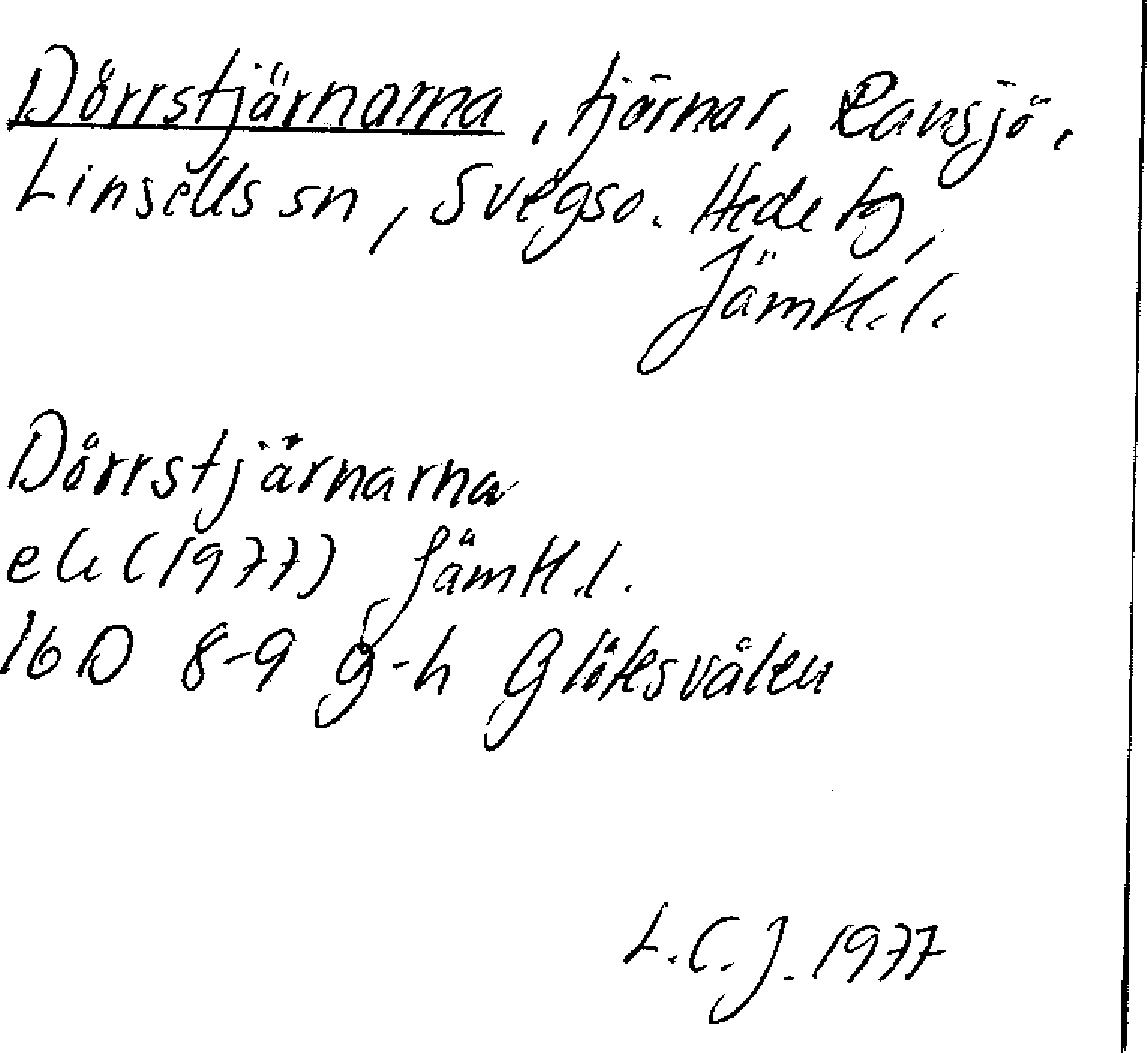 Dörrstjärnarna, tjärnar, Ransjö,
Linsells sn, Svegs o. Hede tg,
Jämtl. l.
Dörrstjärnarna
ek (1977) Jämtl. l.
16 D 8-9 g-h Glötesvålen
L.C.J. 1977